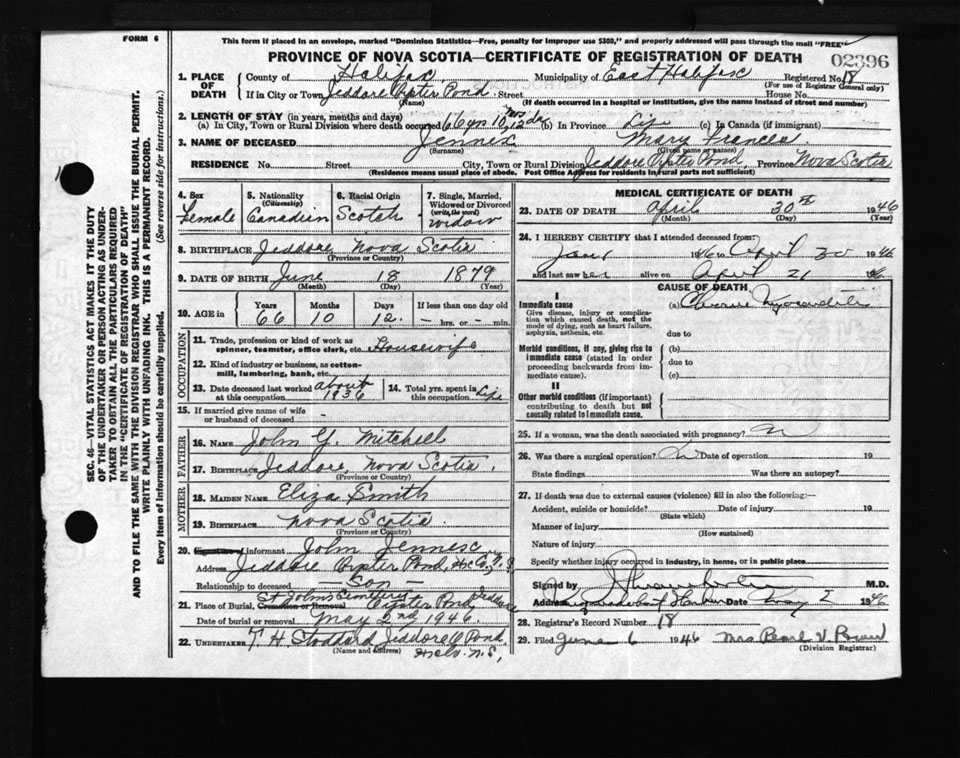 FORM 6
This form if placed in an envelope, marked "Dominion Statistics—Free, penalty for improper use $300," and properly addressed will pass through the mail "FREE"
PROVINCE OF NOVA SCOTIA—CERTIFICATE OF REGISTRATION OF DEATH
02396
1. PLACE OF DEATH
County of Halifax Municipality of East Halifax Registered No. 18
(For use of Registrar General only)
If in City or Town Jeddore Oyster Pond Street House No.
(Name) (If death occurred in a hospital or institution, give the name instead of street and number)
2. LENGTH OF STAY (in years, months and days)
(a) In City, Town or Rural Division where death occurred 66 yrs 10 mos 12 ds (b) In Province Life (c) In Canada (if immigrant)
3. NAME OF DECEASED Jennex Mary Frances
(Surname) (Given names)
RESIDENCE No. Street City, Town or Rural Division Jeddore Oyster Pond, Province Nova Scotia
(Residence means usual place of abode. Post Office Address for residents in rural parts not sufficient)
4. Sex
Female
5. Nationality
(Citizenship)
Canadian
6. Racial Origin
Scotch
7. Single, Married, Widowed or Divorced
(write the word)
widow
8. BIRTHPLACE Jeddore, Nova Scotia
(Province or Country)
9. DATE OF BIRTH June 18 1879
(Month) (Day) (Year)
10. AGE in
Years Months Days If less than one day old
66 10 12 - hrs. or - min.
OCCUPATION
11. Trade, profession or kind of work as spinner, teamster, office clerk, etc. Housewife
12. Kind of industry or business, as cotton-mill, lumbering, bank, etc.
13. Date deceased last worked at this occupation about 1936
14. Total yrs. spent in this occupation Life
15. If married give name of wife or husband of deceased -
FATHER
16. NAME John Y. Mitchell
17. BIRTHPLACE Jeddore, Nova Scotia,
MOTHER
18. MAIDEN NAME Eliza Smith
19. BIRTHPLACE Nova Scotia
(Province or Country)
20. Signature of informant John Jennex
Address Jeddore Oyster Pond, Hx Co, N.S
Relationship to deceased - Son -
21. Place of Burial, Cremation or Removal St Johns Cemetery Oyster Pond, Jeddore
Date of burial or removal May 2nd 1946.
22. UNDERTAKER T. H. Stoddard Jeddore O Pond
(Name and Address) Hx Co. N.S.
MEDICAL CERTIFICATE OF DEATH
23. DATE OF DEATH April 30th 1946
(Month) (Day) (Year)
24. I HEREBY CERTIFY that I attended deceased from:
Jan 1 1946 to April 30 1946
and last saw her alive on April 21 1946
CAUSE OF DEATH
I
Immediate cause
Give disease, injury or complication which caused death, not the mode of dying, such as heart failure, asphyxia, asthenia, etc.
(a) Chronic Myocarditis
due to
Morbid conditions, if any, giving rise to immediate cause (stated in order proceeding backwards from immediate cause).
(b)
due to
(c)
II
Other morbid conditions (if important) contributing to death but not causally related to immediate cause.
25. If a woman, was the death associated with pregnancy?
26. Was there surgical operation? Date of operation 19
State findings Was there an autopsy?
27. If death was due to external causes (violence) fill in also the following:—
Accident, suicide or homicide? Date of injury 19
(State which)
Manner of injury
(How sustained)
Nature of injury
Specify whether injury occurred in industry, in home, or in public place
Signed by M.D.
Address Harbour Date May 2 1946
28. Registrar's Record Number 18
29. Filed June 6 1946 Mrs Pearl V.
(Division Registrar)
SEC. 46—VITAL STATISTICS ACT MAKES IT THE DUTY
OF THE UNDERTAKER OR PERSON ACTING AS UNDER-
TAKER TO OBTAIN ALL THE PARTICULARS REQUIRED
IN THE "CERTIFICATE OF REGISTRATION OF DEATH"
AND TO FILE THE SAME WITH THE DIVISION REGISTRAR WHO SHALL ISSUE THE BURIAL PERMIT.
WRITE PLAINLY WITH UNFADING INK. THIS IS A PERMANENT RECORD.
Every item of Information should be carefully supplied. (See reverse side for instructions.)